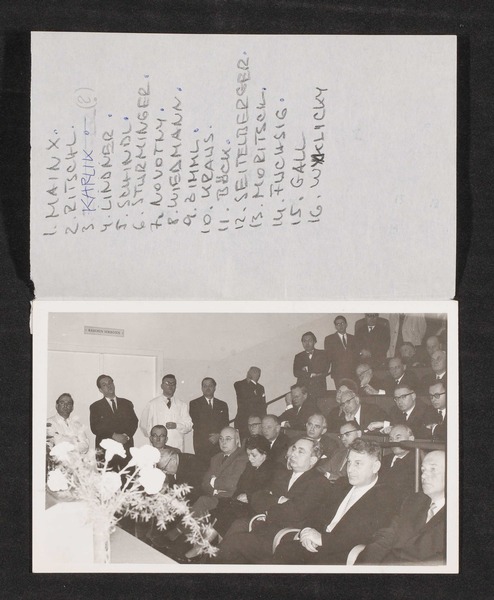 1. MAINX.
2. RITSCHL.
3. KARLIK — (?)
4. LINDNER.
5. SCHINDL.
6. STÜRMINGER.
7. NOVOTNY.
8. WIEDMANN.
9. ZIMML.
10. KRAUS.
11. BÖCK.
12. SEITELBERGER.
13. MORITSCH.
14. FUCHSIG.
15. GALL
16. WYKLICKY